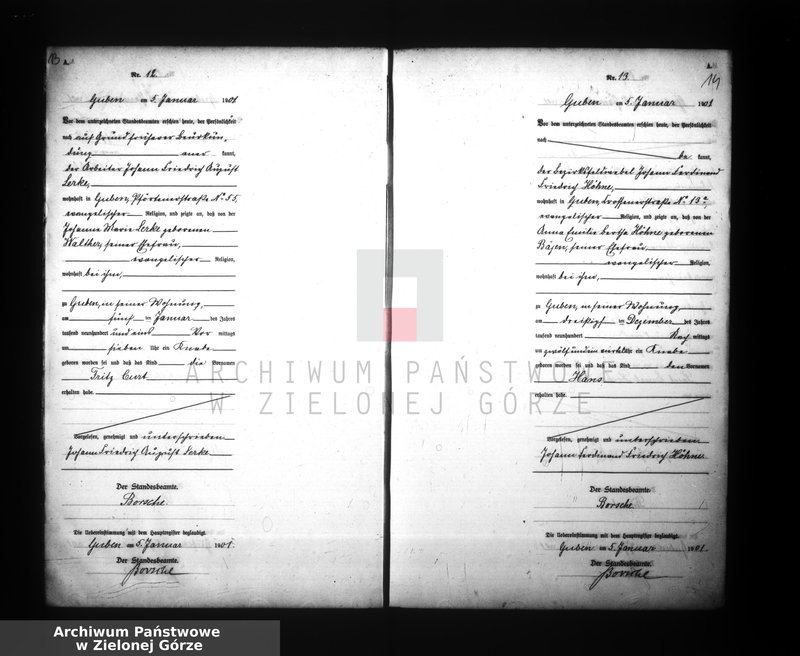 13
A.
Nr. 12.
Guben am 5. Januar 1901
Vor dem unterzeichneten Standesbeamten erschien heute, der Persönlichkeit
nach auf Grund früherer Beurkun,
dung aner kannt,
der Arbeiter Johann Friedrich August
Lerke,
wohnhaft in Guben, Pförtenerstraße No 55,
evangelischer Religion, und zeigte an, daß von der
Johanne Marie Lerke geborenen
Walther, seiner Ehefrau,
evangelischer Religion,
wohnhaft bei ihm,
zu Guben, in seiner Wohnung,
am fünf ten Januar des Jahres
tausend neunhundert und eins Vor mittags
um sieben Uhr ein Knabe
geboren worden sei und daß das Kind die Vornamen
Fritz Curt
erhalten habe.
Vorgelesen, genehmigt und unterschrieben
Johann Friedrich August Lerke
Der Standesbeamte.
Borsche
Die Uebereinstimmung mit dem Hauptregister beglaubigt.
Guben am 5. Januar 1901.
Der Standesbeamte.
Borsche
A.
14
Nr. 13.
Guben am 5. Januar 1901
Vor dem unterzeichneten Standesbeamten erschien heute, der Persönlichkeit
nach
be kannt,
der Bezirksfeldwebel Johann Ferdinand
Friedrich Höhne,
wohnhaft in Guben, Crossenerstraße No 13a,
evangelischer Religion, und zeigte an, daß von der
Anna Emilie Bertha Höhne geborenen
seiner Ehefrau,
evangelischer Religion,
wohnhaft bei ihm,
zu Guben, in seiner Wohnung,
am dreißigst en Dezember des Jahres
tausend neunhundert Nach mittags
um zwölf und ein viertel Uhr ein Knabe
geboren worden sei und daß das Kind den Vornamen
Hans
erhalten habe.
Vorgelesen, genehmigt und unterschrieben
Johann Ferdinand Friedrich Höhne
Der Standesbeamte.
Borsche
Die Uebereinstimmung mit dem Hauptregister beglaubigt.
Guben am 5. Januar 1901.
Der Standesbeamte.
Borsche
ARCHIWUM PAŃSTWOWE
W ZIELONEJ GÓRZE
Archiwum Państwowe
w Zielonej Górze